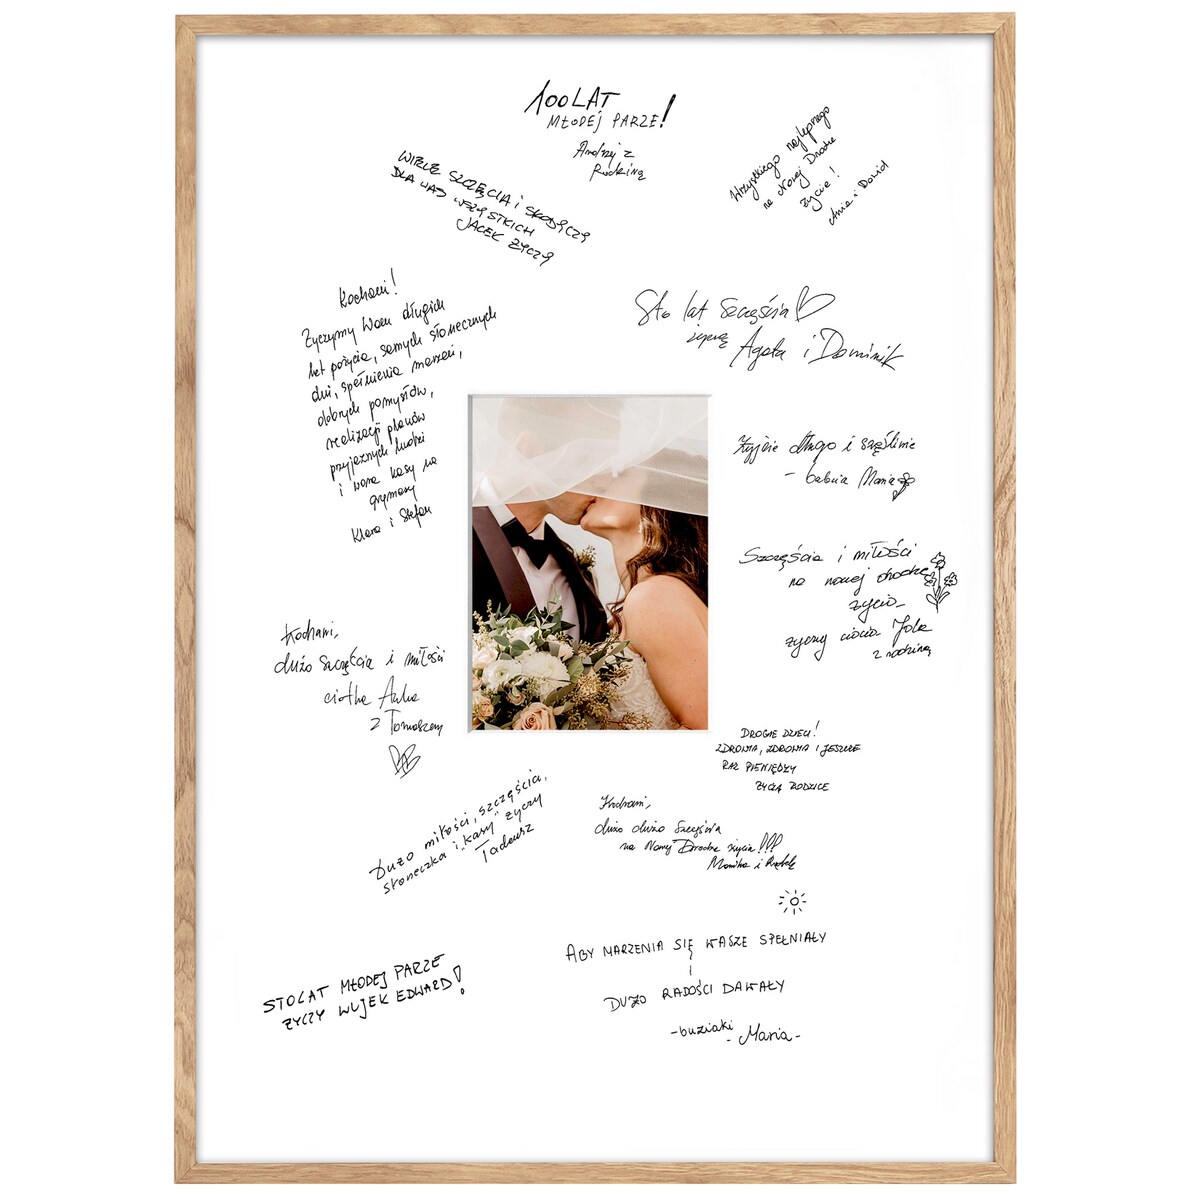 100 LAT
MŁODEJ PARZE!
Andrzej z
Rodziną
WIELE SZCZĘCIA i SŁODYCZY
DLA WAS WSZYSTKICH
JACEK ŻYCZY
Wszystkiego najlepszego
na Nowej Drodze
życia!
Ania i Dawid
Kochani!
Życzymy Wam długich
lat pożycia, samych słonecznych
dni, spełnienia marzeń,
dobrych pomysłów,
realizacji planów
przyjaznych ludzi
i worka kasy na
Klara i Stefan
Sto lat Szczęścia
życzą Agata i Dominik
Żyjcie długo i szęśliwie
- babcia Maria
Szczęścia i miłości
na nowej drodze
życia
życzy ciocia Jola
z rodziną
Kochani,
dużo szczęścia i miłości
ciotka Anka
z Tomaszem
DROGIE DZIECI!
ZDROWIA, ZDROWIA I JESZCZE
RAZ PIENIĘDZY
ŻYCZĄ RODZICE
DUŻO miłości, szczęścia,
słoneczka i "kasy" życzy
Tadeusz
Kochani,
dużo dużo Szczęścia
na Nowej Drodze życia!!!
Monika i
ABY MARZENIA SIĘ WASZE SPEŁNIAŁY
I
DUŻO RADOŚCI DAWAŁY
-buziaki
- Maria -
STO LAT MŁODEJ PARZE
ŻYCZY WUJEK EDWARD!